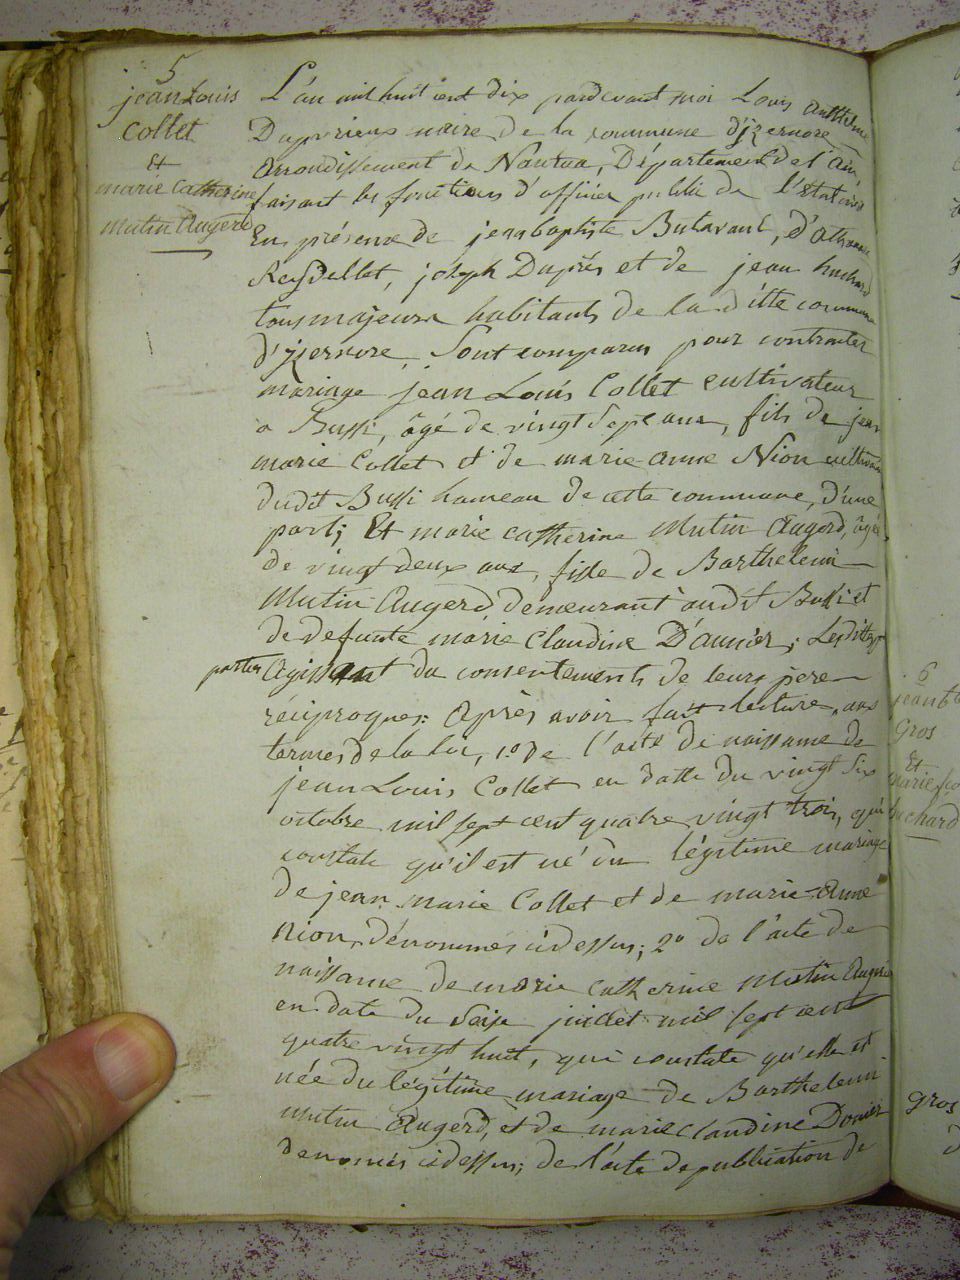 5
jean Louis
Collet
et
marie Catherine
Mutin Augerd
L'an mil huit cent dix pardevant moi Louis anthelme
Duprieux maire de la commune d'izernore
arrondissement de Nantua, Département de l'ain,
faisant les fonctions d'officier public de l'état civil
En présence de jeanbaptiste Butavant, d'athanase
Reydellet, joseph Duprès et de jean huchard
tous majeurs habitants de la ditte commune
d'izernore, Sont comparus pour contracter
mariage jean Louis Collet cultivateur
a Bussi, âgé de vingt sept ans, fils de jean
marie Collet et de marie anne Nion
dudit Bussi hameau de cette commune, d'une
part; Et marie catherine Mutin Augerd, âgée
de vingt deux ans, fille de Barthelemi
Mutin Augerd demeurant audit Bussi et
de defunte marie Claudine D'aunier; Lesdittes
parties agissant du consentements de leurs père
réciproques: Après avoir fait lecture, aux
termes de la loi, 1.o De l'acte de naissance de
jean Louis Collet en datte du vingt six
octobre mil sept cent quatre vingt trois, qui
constate qu'il est né du légitime mariage
de jean marie Collet et de marie-Anne
Nion, dénommés cidessus; 2o de l'acte de
naissance de marie catherine Mutin Augerd
en date du Seize juillet mil sept cent
quatre vingt huit, qui constate qu'elle est
née du légitime mariage de Barthelemi
Mutin Augerd, et de marie claudine Donier
denomés cidessus; de l'acte de publication de
6
Gros
Et
huchard
gros